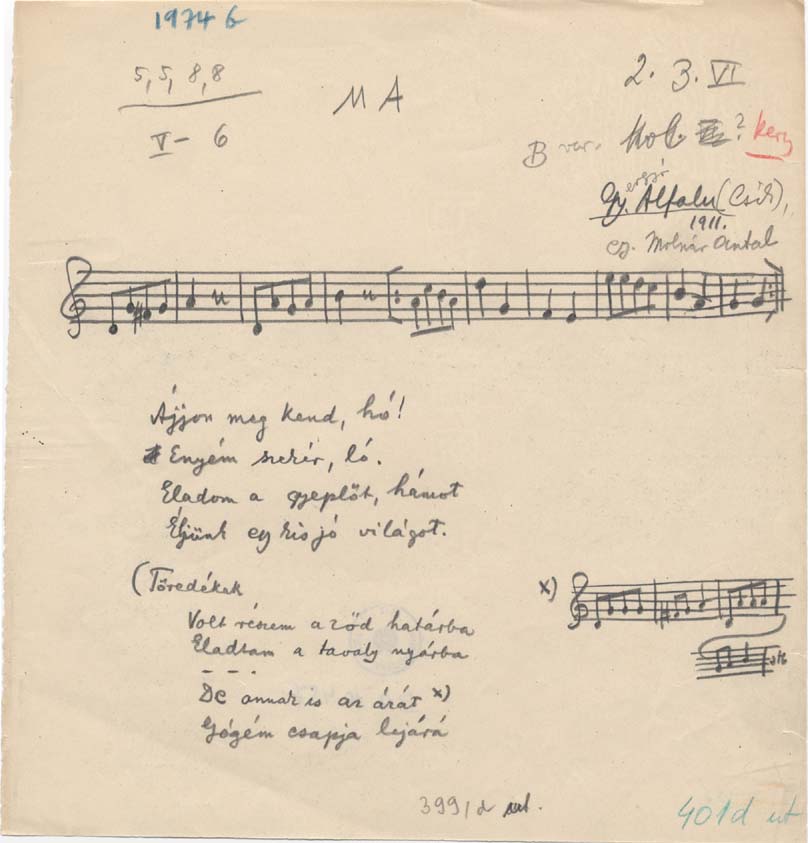 1974 6
5, 5, 8, 8
V - 6
MA
2. 3. VI
B var. Hol ? ker
Gy. ergyó Alfalu (Csík),
1911.
Molnár Antal
Ájjon meg kend, hó!
Enyém szekér, ló.
Eladom a gyeplőt, hámot
Éljünk egy kis jó világot.
(Töredékek
Volt részem a ződ határba
Eladtam a tavaly nyárba
- - -
De annak is az árát x)
Gógém csapja lejárá
x)
stb
399/d ut.
401d ut